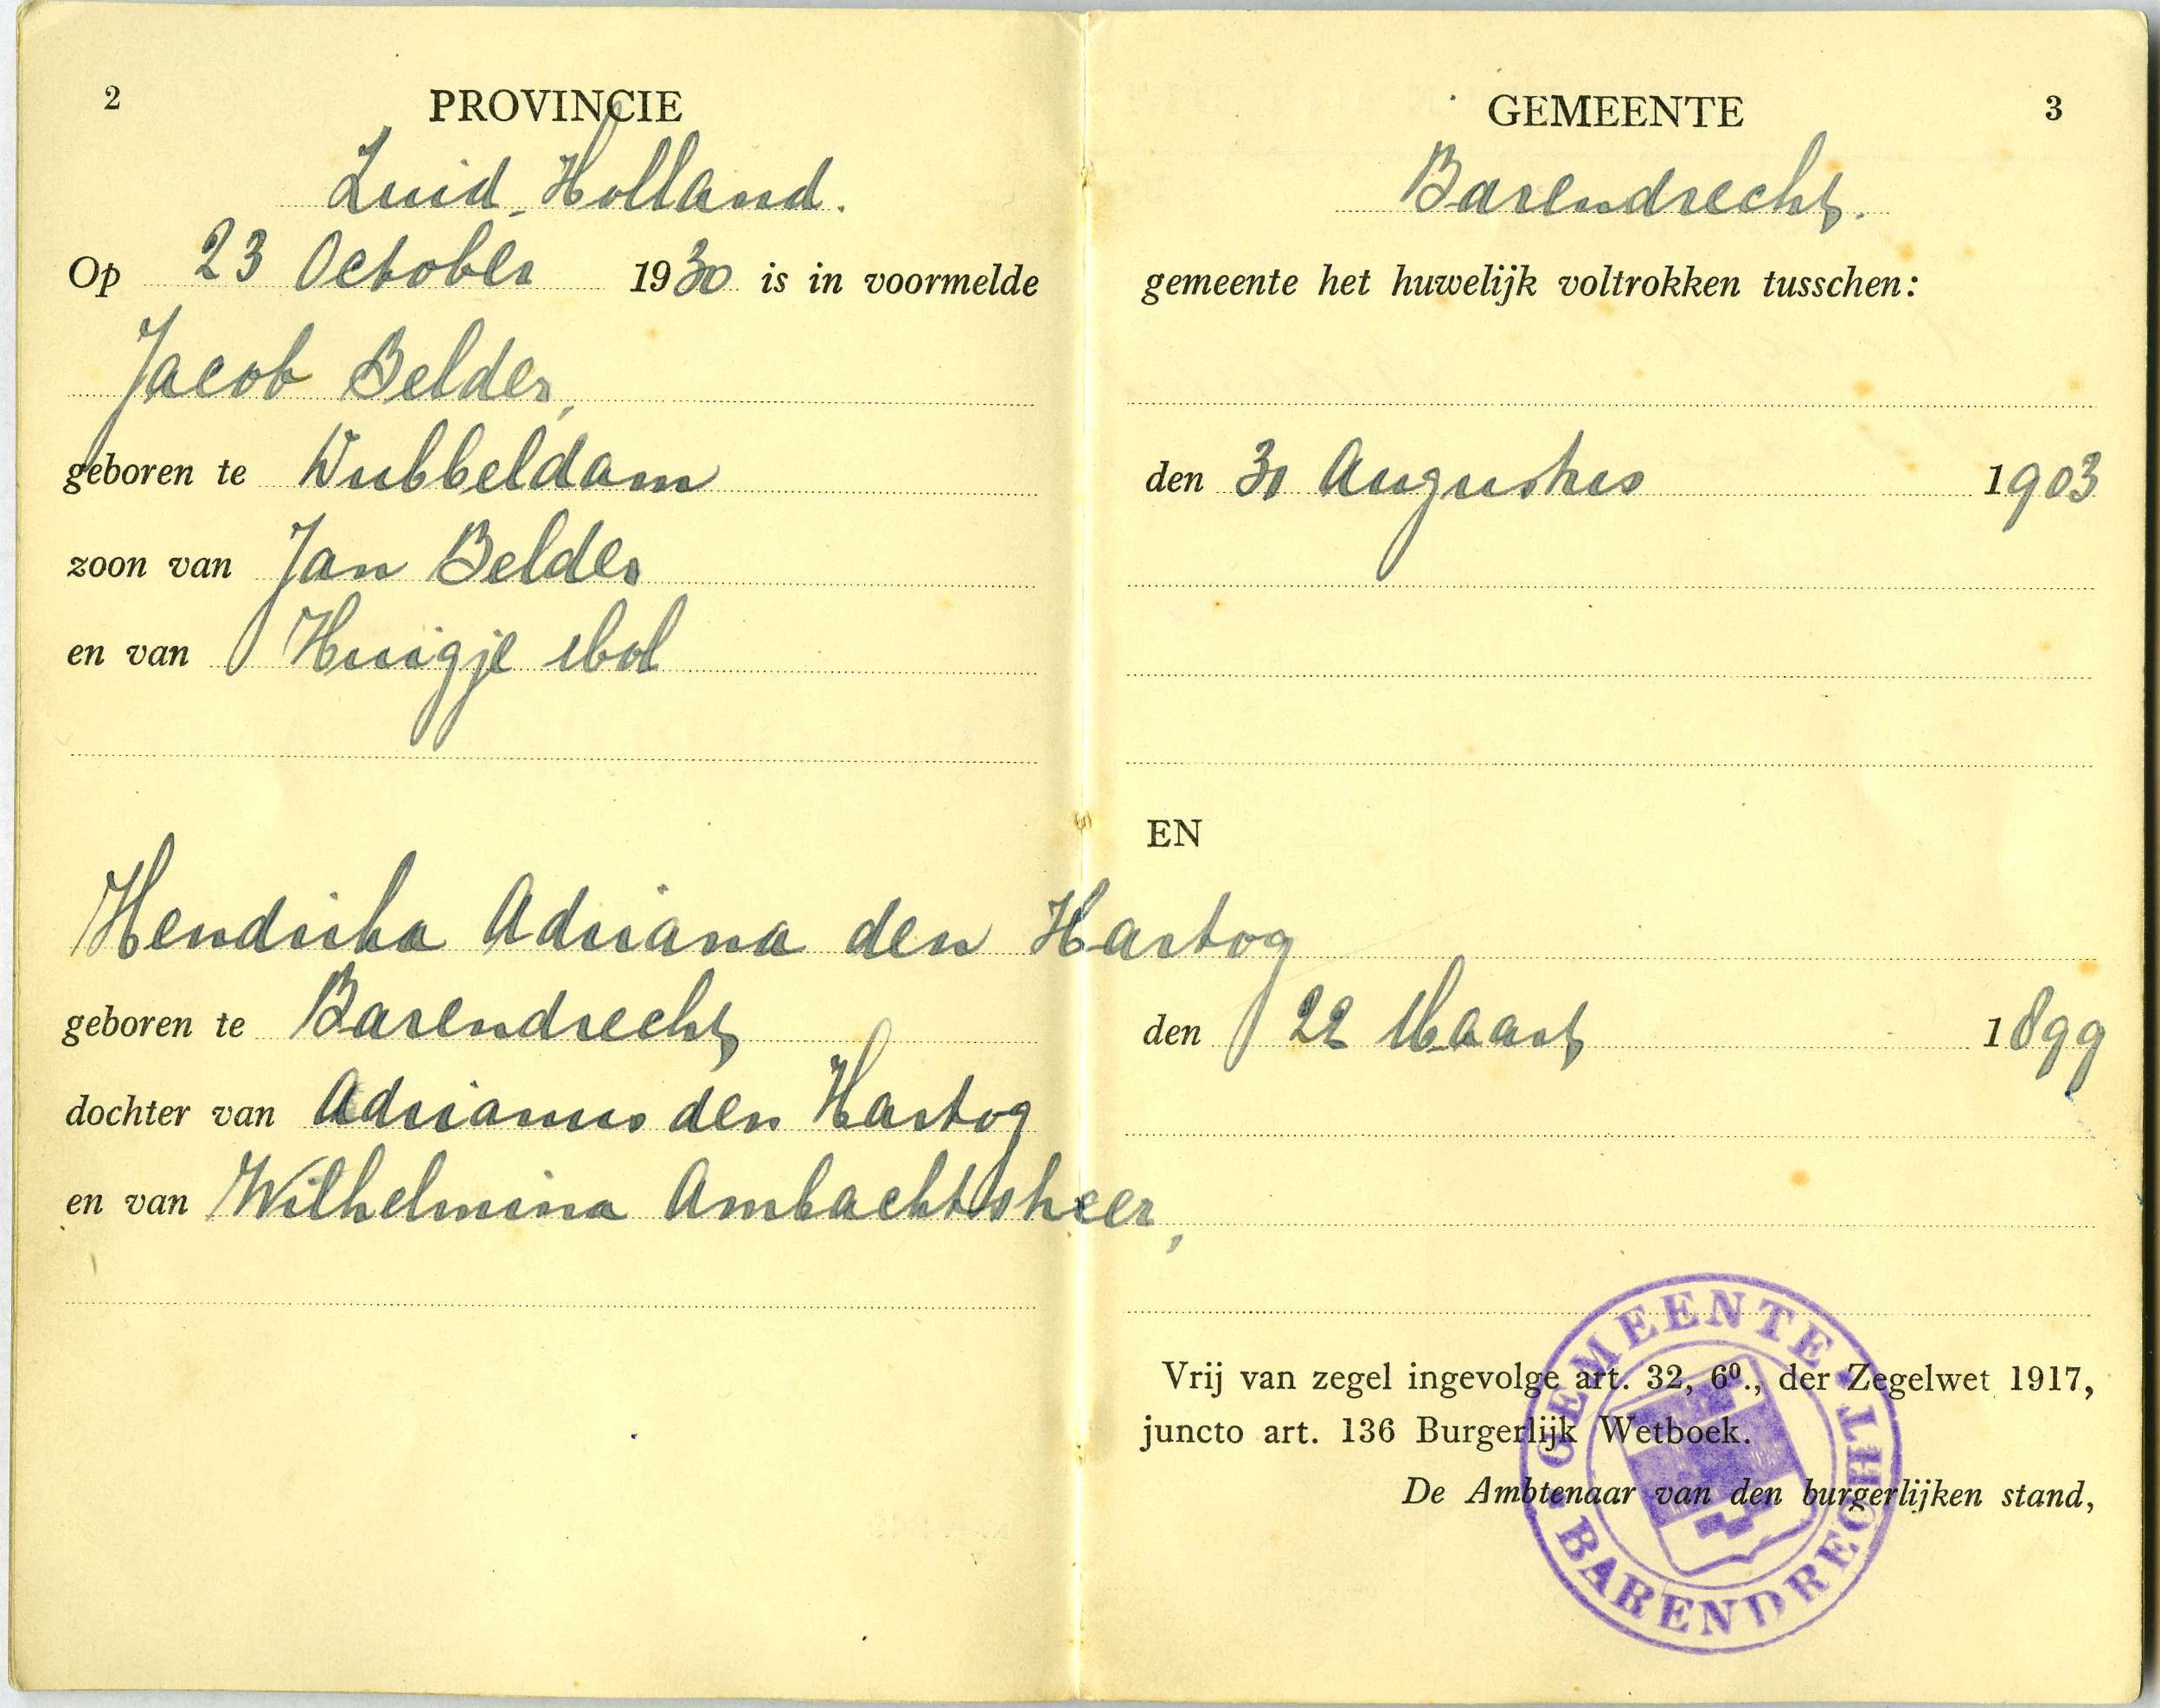 2
PROVINCIE
Zuid-Holland.
Op 23 October 1930 is in voormelde
Jacob Belder,
geboren te Dubbeldam
zoon van Jan Belder
en van Huigje Mol
Hendrika Adriana den Hartog
geboren te Barendrecht
dochter van Adrianus den Hartog
en van Wilhelmina Ambachtsheer,
GEMEENTE
3
Barendrecht.
gemeente het huwelijk voltrokken tusschen:
den Augustus 1903
EN
den 22 Maart 1899
Vrij van zegel ingevolge art. 32, 6⁰., der Zegelwet 1917,
juncto art. 136 Burgerlijk Wetboek.
De Ambtenaar van den burgerlijken stand,
GEMEENTE BARENDRECHT